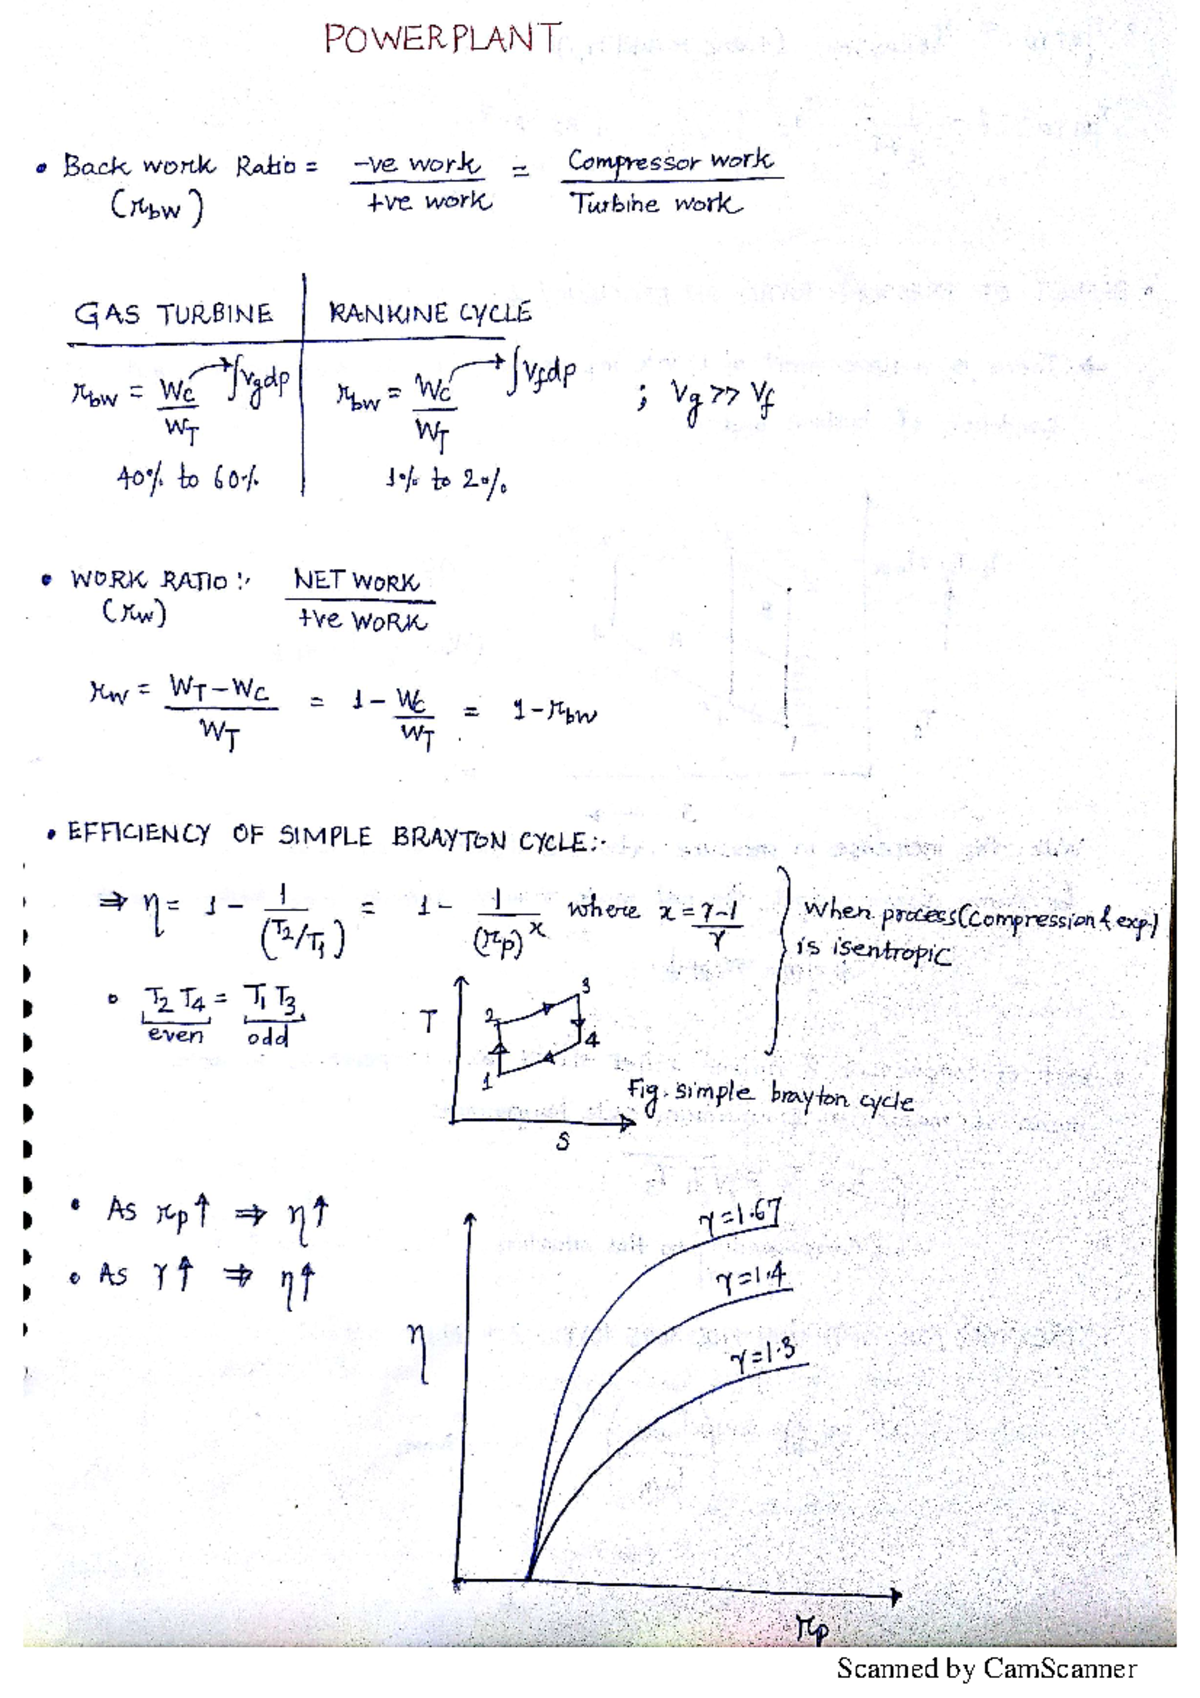 POWERPLANT
• Back work Ratio = -ve work / +ve work = Compressor work / Turbine work
(rbw)
GAS TURBINE | RANKINE CYCLE
rbw = Wc / WT → ∫Vgdp | rbw = Wc / WT → ∫Vfdp ; Vg >> Vf
40% to 60% | 1% to 2%
• WORK RATIO :- NET WORK / +ve WORK
(rw)
rw = WT - Wc / WT = 1 - Wc / WT = 1 - rbw
• EFFICIENCY OF SIMPLE BRAYTON CYCLE:-
⇒ η = 1 - 1 / (T2/T1) = 1 - 1 / (rp)^x where x = γ-1 / γ } when process (compression & exp.) is isentropic
○ T2 T4 = T1 T3
even odd
T
2
3
4
1
S
Fig. simple brayton cycle
• As rp↑ ⇒ η↑
• As γ↑ ⇒ η↑
γ=1.67
γ=1.4
γ=1.3
η
rp
Scanned by CamScanner